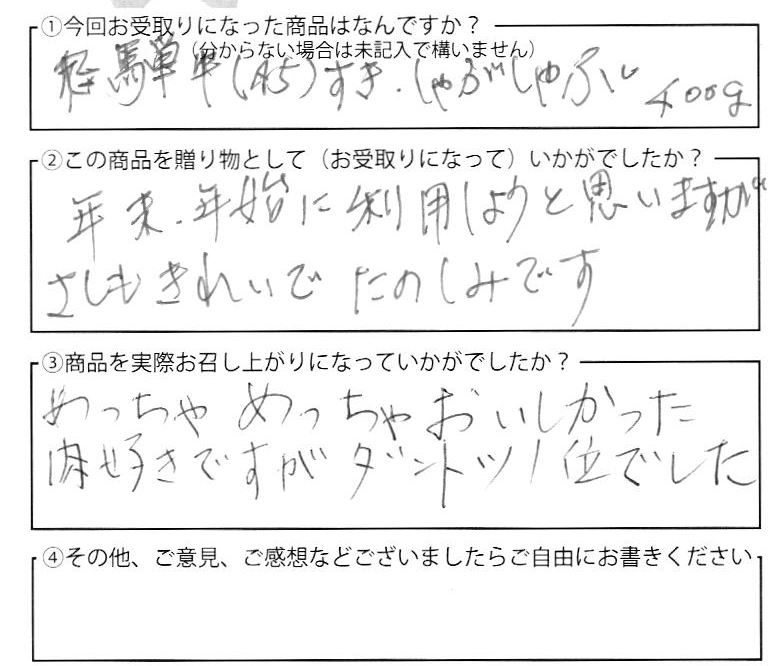 ①今回お受取りになった商品はなんですか？
（分からない場合は未記入で構いません）
但馬牛(A5)すき・しゃぶしゃぶ用 400g
②この商品を贈り物として（お受取りになって）いかがでしたか？
年末・年始に利用しようと思いますが
さしもきれいで たのしみです
③商品を実際お召し上がりになっていかがでしたか？
めっちゃ めっちゃ おいしかった
肉好きですが ダントツ1位でした
④その他、ご意見、ご感想などございましたらご自由にお書きください